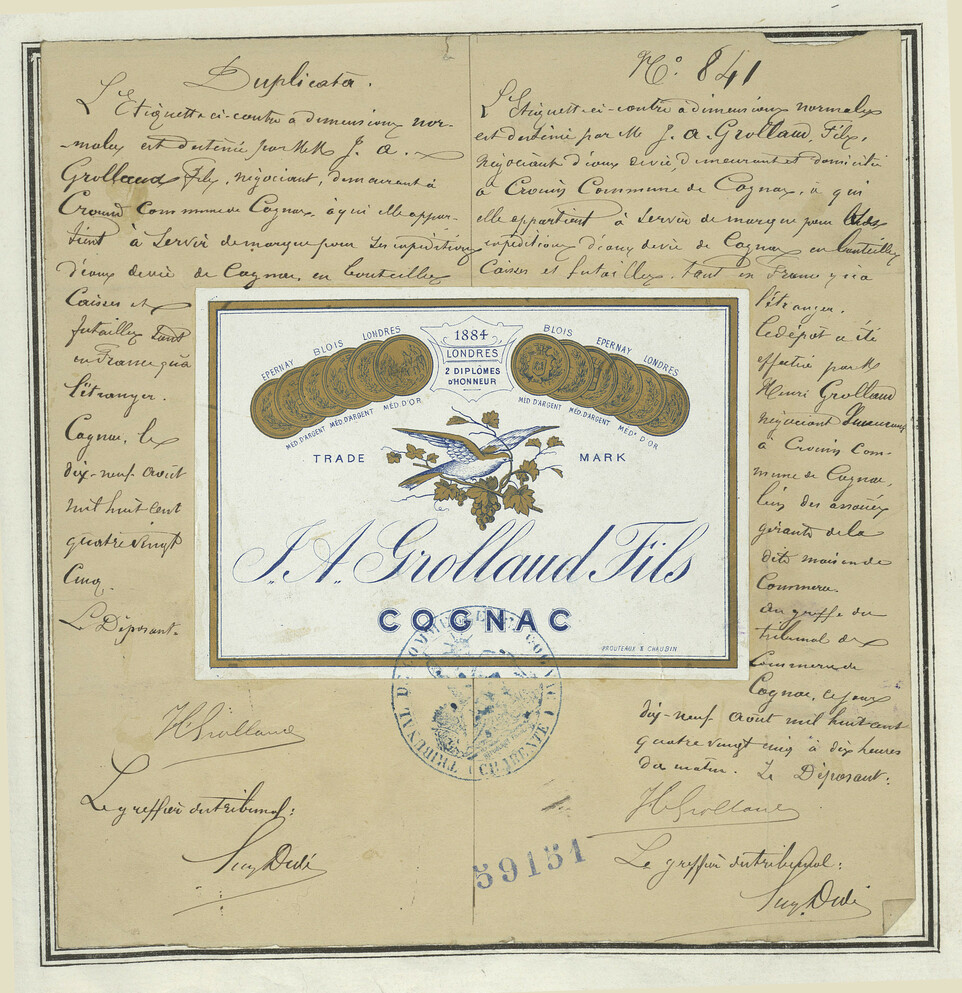 Duplicata.
L'Etiquette ci-contre à dimensions nor-
males est destinée par M J. A.
Grollaud Fils, négociant, demeurant à
Crouin Commune de Cognac, à qui elle appar-
tient à servir de marque pour ses expéditions
d'eaux de vie de Cognac, en bouteilles
Caisses et
futailles tant
en France qu'à
l'étranger.
Cognac, le
dix-neuf août
mil huit cent
quatre vingt
Cinq.
Le Déposant.
HGrollaud
Le greffier du tribunal:
N.º 841
L'Etiquette ci-contre à dimensions normales
est destinée par M J. A. Grollaud Fils,
négociant d'eaux de vie, demeurant et domicilié
à Crouin Commune de Cognac, à qui
elle appartient à servir de marque pour
expéditions d'eaux de vie de Cognac en bouteilles
Caisses et futailles, tant en France qu'à
l'étranger.
Le dépôt a été
effectué par M
Henri Grollaud
négociant demeurant
à Crouin Com-
mune de Cognac,
l'un des associés
gérants de la
dite maison de
Commerce.
Au greffe du
tribunal de
Commerce de
Cognac, ce jour
dix-neuf août mil huit cent
quatre vingt cinq à dix heures
du matin. Le Déposant:
HGrollaud
Le greffier du tribunal:
EPERNAY BLOIS LONDRES
1884
LONDRES
2 DIPLÔMES
D'HONNEUR
BLOIS EPERNAY LONDRES
MÉD. D'ARGENT MÉD. D'ARGENT MÉD. D'OR
MÉD. D'ARGENT MÉD. D'ARGENT MÉD. D'OR
TRADE MARK
J. A. Grollaud Fils
COGNAC
PROUTEAUX & CHAUBIN
TRIBUNAL DE COMMERCE DE COGNAC (CHARENTE)
59151